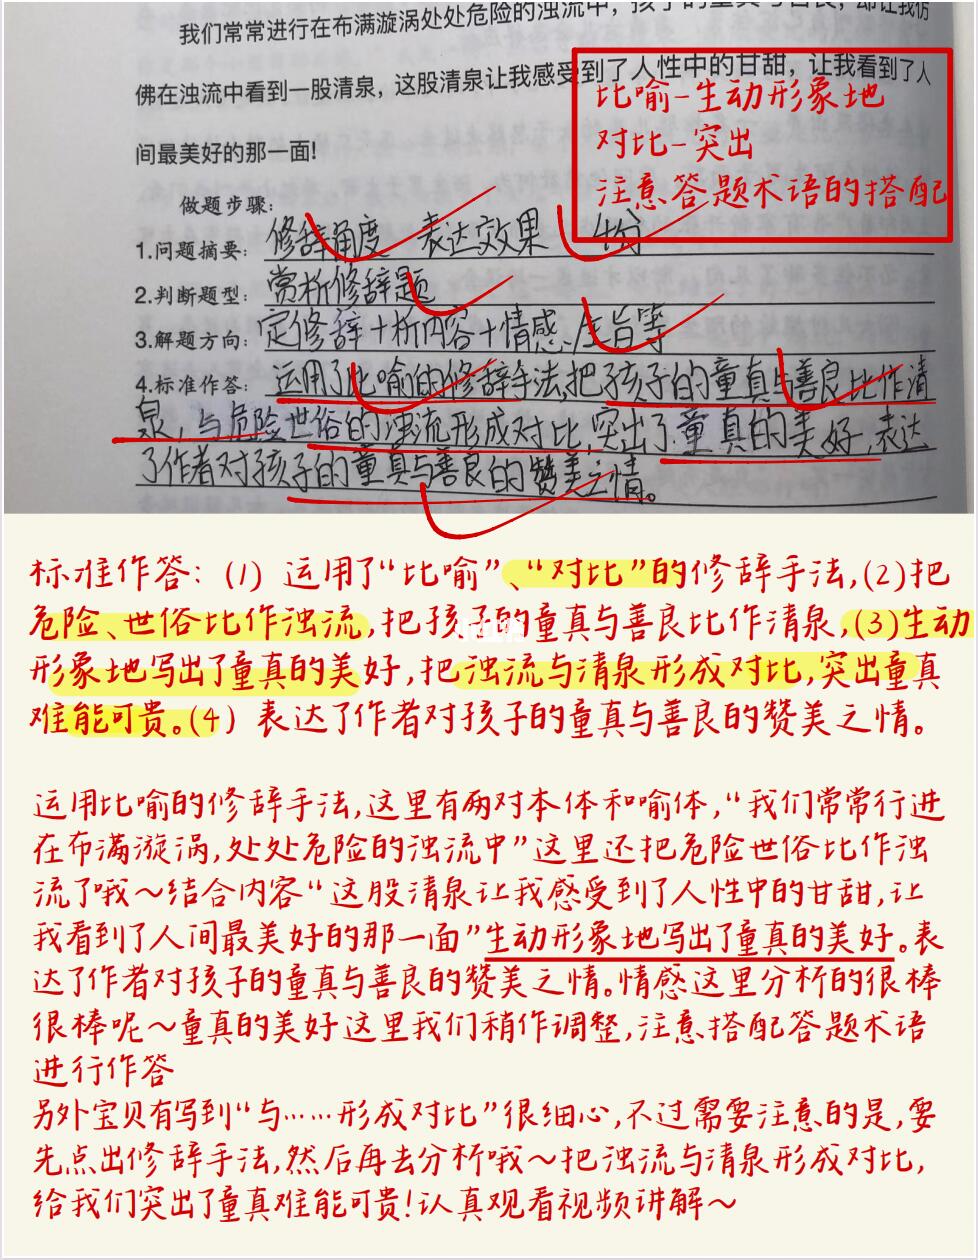 我们常常进行在布满漩涡处处危险的浊流中，孩子的童真与善良，却让我仿
佛在浊流中看到一股清泉，这股清泉让我感受到了人性中的甘甜，让我看到了人
间最美好的那一面!
比喻-生动形象地
对比-突出
注意答题术语的搭配
做题步骤:
1.问题摘要: 修辞角度 表达效果 4分
2.判断题型: 赏析修辞题
3.解题方向: 定修辞+析内容+情感/主旨等
4.标准作答: 运用了比喻的修辞手法,把孩子的童真与善良比作清
泉，与危险世俗的浊流形成对比,突出了童真的美好,表达
了作者对孩子的童真与善良的赞美之情。
标准作答: (1) 运用了“比喻”、“对比”的修辞手法,(2)把
危险、世俗比作浊流,把孩子的童真与善良比作清泉,(3)生动
形象地写出了童真的美好,把浊流与清泉形成对比,突出童真
难能可贵。(4) 表达了作者对孩子的童真与善良的赞美之情。
运用比喻的修辞手法,这里有两对本体和喻体,“我们常常行进
在布满漩涡,处处危险的浊流中”这里还把危险世俗比作浊
流了哦~结合内容“这股清泉让我感受到了人性中的甘甜,让
我看到了人间最美好的那一面”生动形象地写出了童真的美好。表
达了作者对孩子的童真与善良的赞美之情。情感这里分析的很棒
很棒呢~童真的美好这里我们稍作调整,注意搭配答题术语
进行作答
另外宝贝有写到“与……形成对比”很细心,不过需要注意的是,要
先点出修辞手法,然后再去分析哦~把浊流与清泉形成对比,
给我们突出了童真难能可贵!认真观看视频讲解~